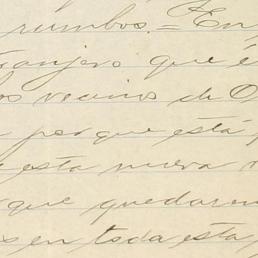 rumbos. = En
tranjero que é
os vecino de O
porque está
esta nueva
que quedaren
s en toda esta